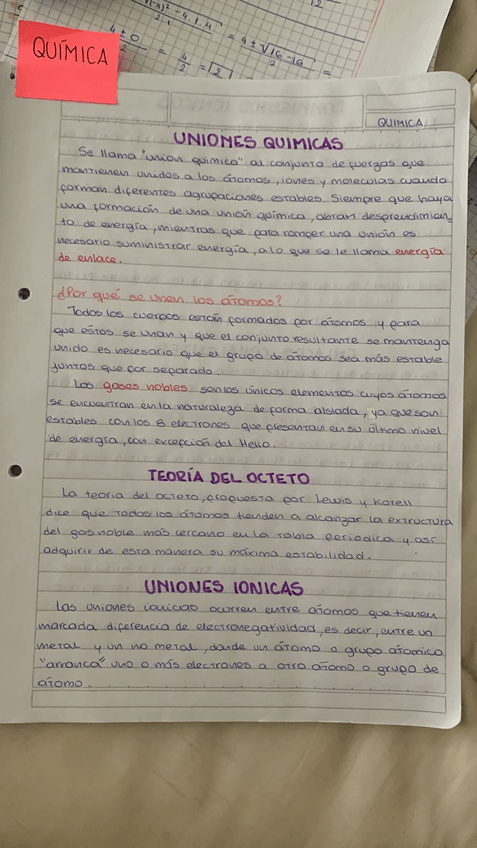 4 ± 0
2
= 4
2
= 2
= 4 ± √16 - 16
2
=
QUÍMICA
QUIMICA
UNIONES QUIMICAS
Se llama "union quimica" al conjunto de fuerzas que
mantienen unidos a los átomos, iones y moleculas cuando
forman diferentes agrupaciones estables. Siempre que haya
una formación de una unión química, abran desprendimien-
to de energía, mientras que para romper una unión es
necesario suministrar energía, a lo que se le llama energía
de enlace.
¿Por qué se unen los átomos?
Todos los cuerpos están formados por átomos y para
que estos se unan y que el conjunto resultante se mantenga
unido es necesario que el grupo de átomos sea más estable
juntos que por separado.
Los gases nobles son los únicos elementos cuyos átomos
se encuentran en la naturaleza de forma aislada, ya que son
estables con los 8 electrones que presentan en su último nivel
de energía, con excepción del Helio.
TEORÍA DEL OCTETO
La teoria del octeto, propuesta por Lewis y Korell
dice que todos los átomos tienden a alcanzar la extructura
del gas noble más cercano en la tabla periodica y así
adquirir de esta manera su máxima estabilidad.
UNIONES IONICAS
Las uniones ionicas ocurren entre átomos que tienen
marcada diferencia de electronegatividad, es decir, entre un
metal y un no metal, donde un átomo o grupo atomico
"arranca" uno o más electrones a otro átomo o grupo de
átomo.